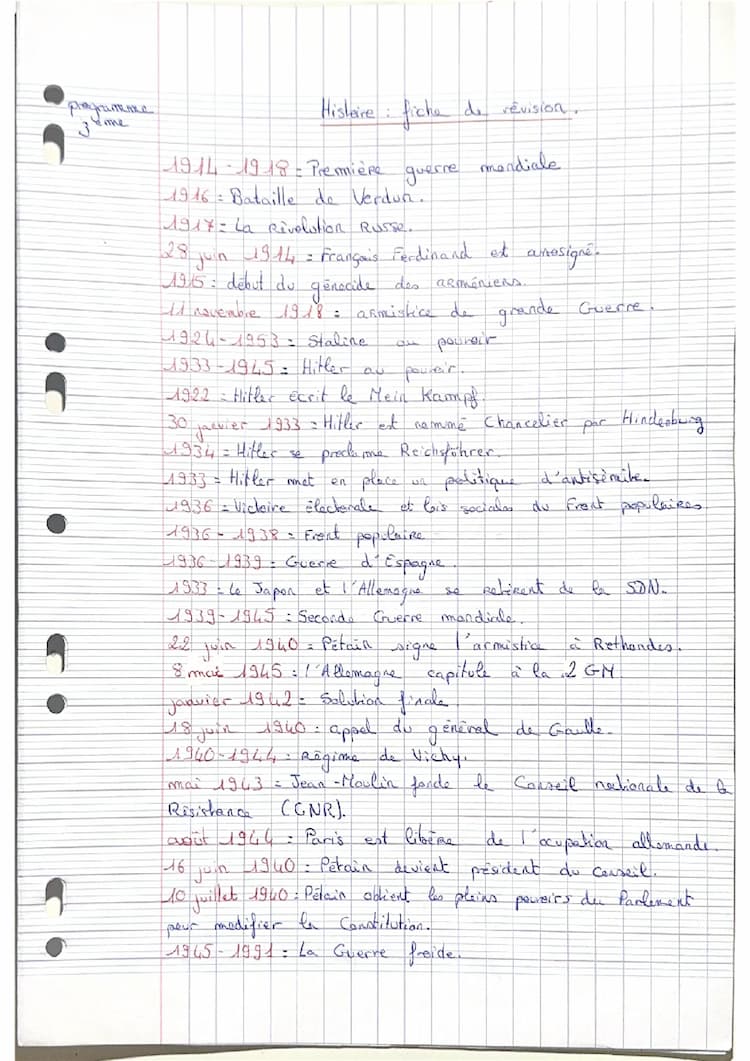 programme
3ème
Histoire : fiche de révision.
1914-1918 = Première guerre mondiale
1916 = Bataille de Verdun.
1917 = La Révolution Russe.
28 juin 1914 = François Ferdinand est
1915 : début du génocide des arméniens.
11 novembre 1918 : armistice de grande Guerre.
1924-1953 = Staline au pouvoir
1933-1945 = Hitler au pouvoir.
1922 = Hitler écrit le Mein Kampf.
30 janvier 1933 = Hitler est nommé Chancelier par Hindenburg
1934 = Hitler se proclame Reichsführer.
1933 = Hitler met en place un politique d'antisémite.
1936 = Victoire Électorale et lois sociales du Front populaires
1936-1938 = Front populaire
1936-1939 = Guerre d'Espagne.
1933 = Le Japon et l'Allemagne se retirent de la SDN.
1939-1945 : Seconde Guerre mondiale.
22 juin 1940 = Pétain signe l'armistice à Rethondes.
8 mai 1945 : l'Allemagne capitule à la 2 GM
janvier 1942 = Solution finale
18 juin 1940 : appel du général de Gaulle.
1940-1944 : Régime de Vichy.
mai 1943 = Jean-Moulin fonde le Conseil nationale de la
Résistance (CNR).
août 1944 : Paris est libéré de l'ocupation allemande.
16 juin 1940 : Pétain devient président du Conseil.
10 juillet 1940 : Pétain obtient les pleins pouvoirs du Parlement
pour modifier la Constitution.
1945-1991 = La Guerre froide.